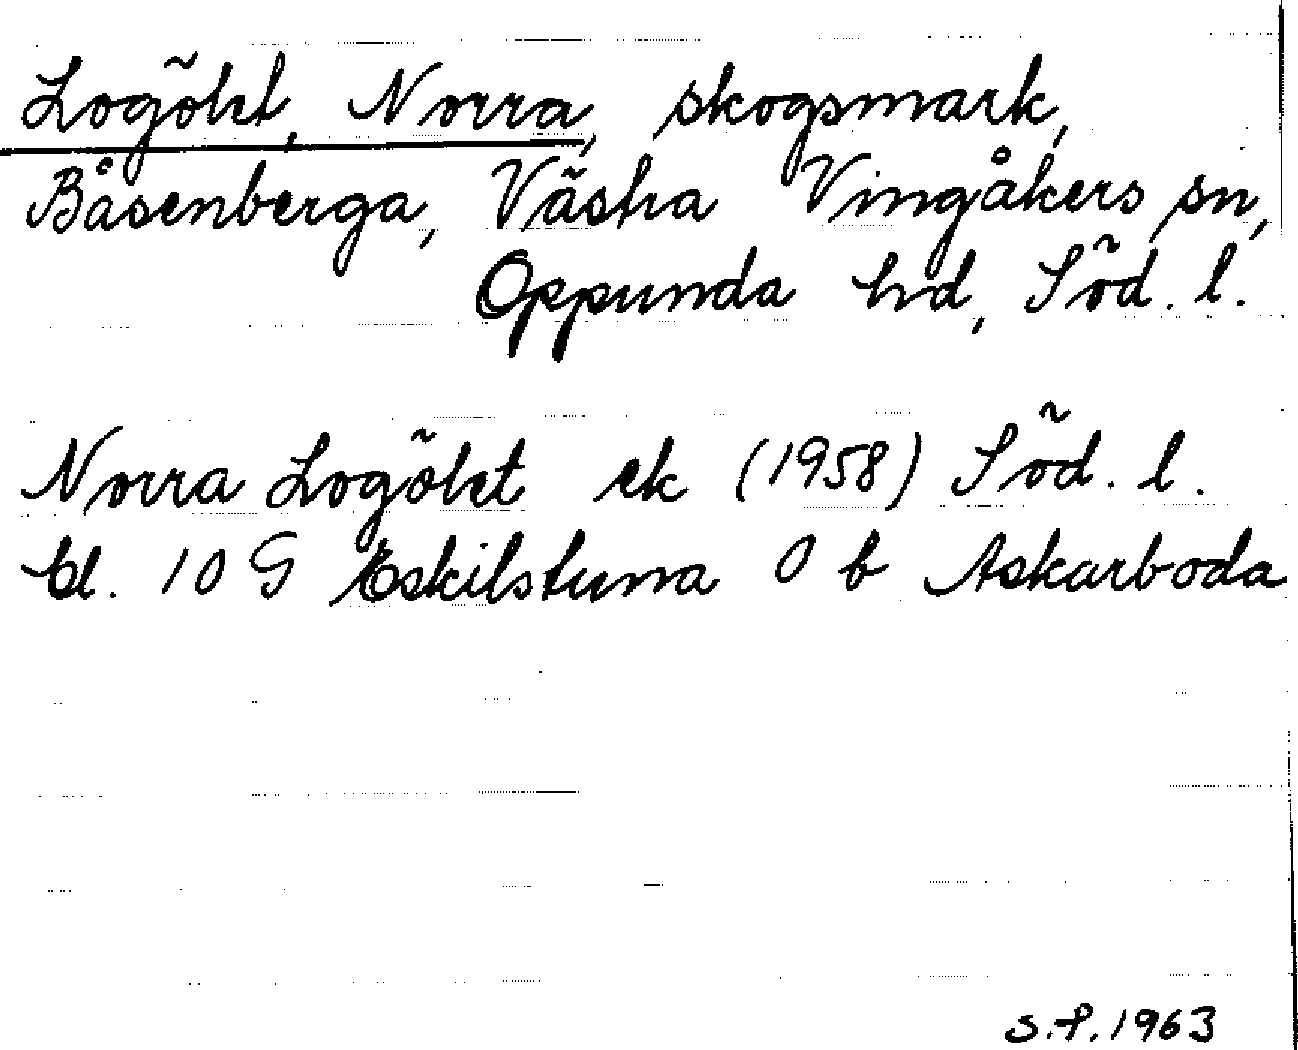 Logölet, Norra, skogsmark,
Båsenberga, Västra Vingåkers sn,
Oppunda hd, Söd. l.
Norra Logölet ek (1958) Söd. l.
bl. 10 G Eskilstuna 0 b Askarboda
S.F. 1963